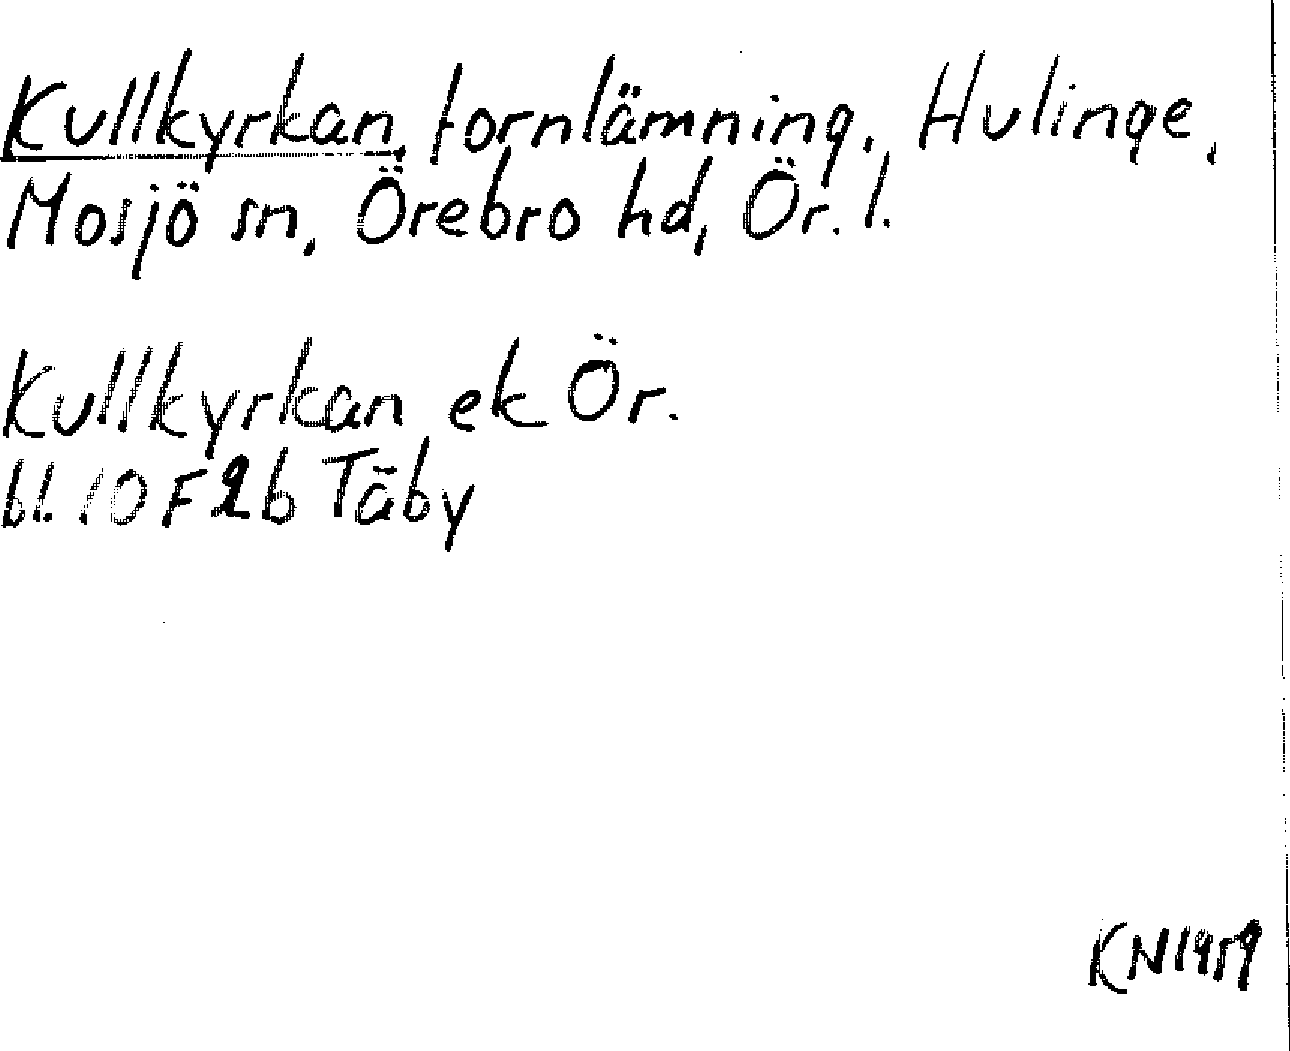 Kullkyrkan, fornlämning, Hulinge,
Mosjö sn, Örebro hd, Ör. l.
Kullkyrkan ek Ör.
bl. 10 F 2b Täby
KN 1959